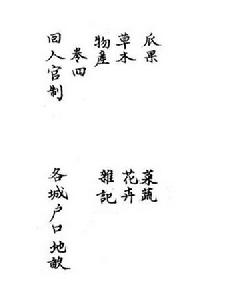 瓜果 菜蔬
草木 花卉
物產 雜記
卷四
回人官制 各城戶口地畝